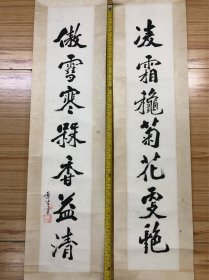 凌霜秾菊花更艳
傲雪寒梅香益清